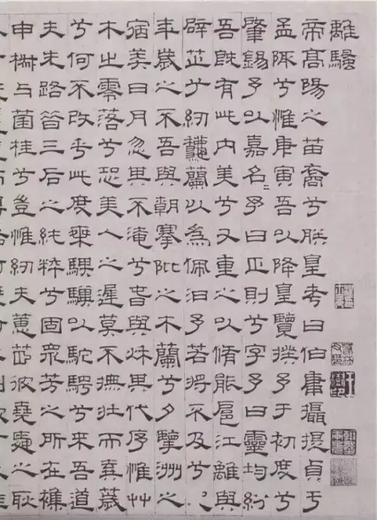 離騷
帝高陽之苗裔兮朕皇考曰伯庸攝提貞于
孟陬兮惟庚寅吾以降皇覽揆予于初度兮
肇錫予以嘉名予曰正則兮字予曰靈均紛
吾既有此内美兮又重之以脩能扈江離與
辟芷兮紉秋蘭以為佩汩予若將不及兮
年歲之不吾與朝搴阰之木蘭兮夕擥洲之
宿莽日月忽其不淹兮春與秋其代序惟艸
木之零落兮恐美人之遲莫不撫壯而棄薉
兮何不改乎此度乘騏驥以駝騁兮來吾道
夫先路昔三后之純粹兮固衆芳之所在襍
申椒与菌桂兮豈惟紉夫蕙茝彼堯舜之耿